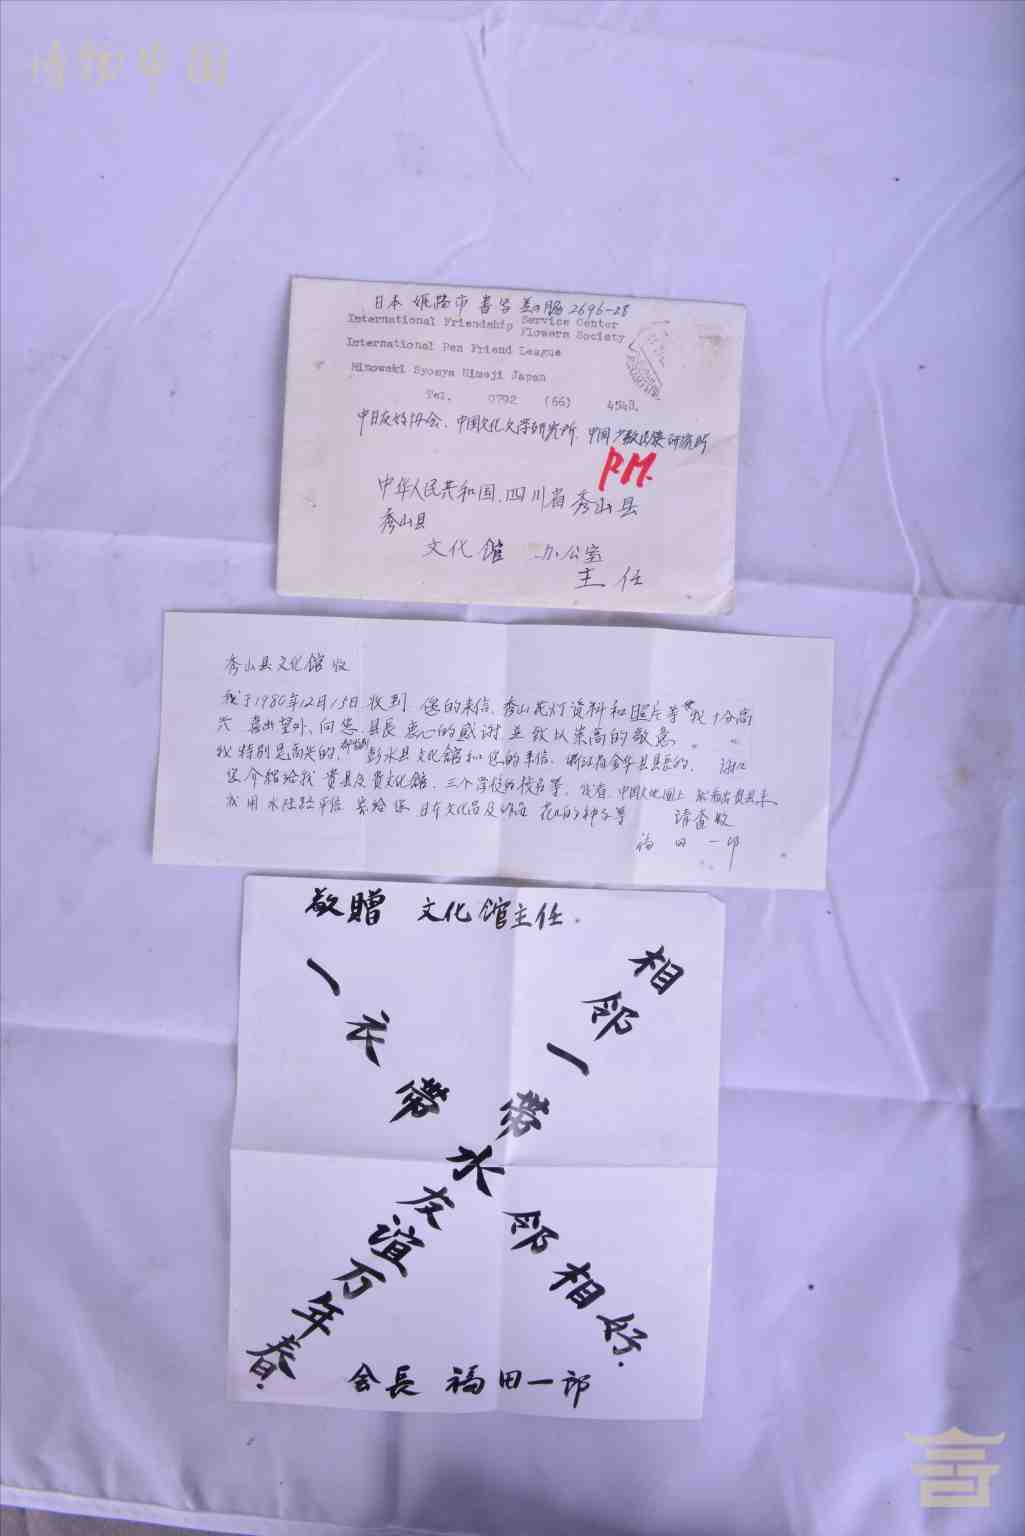 博物中国
日本 姫路市 書写 2696-28
International Friendship Service Center
Flowers Society
International Pen Friend League
Hinowaki Syosya Himeji Japan
Tel. 0792 (66) 4543.
中日友好协会、中国文化文学研究所、中国少数民族研究所
P.M.
中华人民共和国、四川省秀山县
秀山县
文化馆 办公室
主任
秀山县文化馆收
我于1980年12月15日收到 您的来信、秀山花灯资料和照片等 我十分高
兴 喜出望外、向您 县長 衷心的感谢 并 致以崇高的敬意
我特别是高兴的 彭水县文化馆和您的来信、浙江省金华县县長的、
您介绍给我 贵县及贵文化馆、三个学校的校名等、我看 中国大地图上
我用水陆路平信 寄给您 日本文化品及 花的种子等 请查收
福田一郎
敬贈 文化馆主任.
一衣带水邻相好.
相邻一带水友谊万年春.
会長 福田一郎